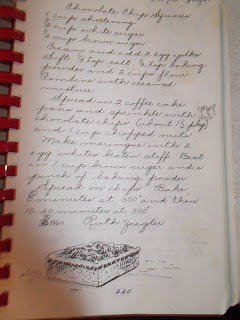 Chocolate Chip Squares
1 cup shortening
1/2 cup white sugar
1/2 cup brown sugar
Cream and add 2 egg yolks
Sift 1/4 tsp salt. 1/2 tsp baking
powder and 2 cups flour
Combine with creamed
mixture
Spread in 2 coffee cake
pans and sprinkle with
chocolate chips (about 1 1/2 pkg)
and 1 cup chopped nuts
Make meringue with 2
egg whites beaten stiff Beat
in 1 cup brown sugar and a
pinch of baking powder
Spread on chips Bake
5 minutes at 350° and then
15-20 minutes at 300°
Mrs Ruth Ziegler
225